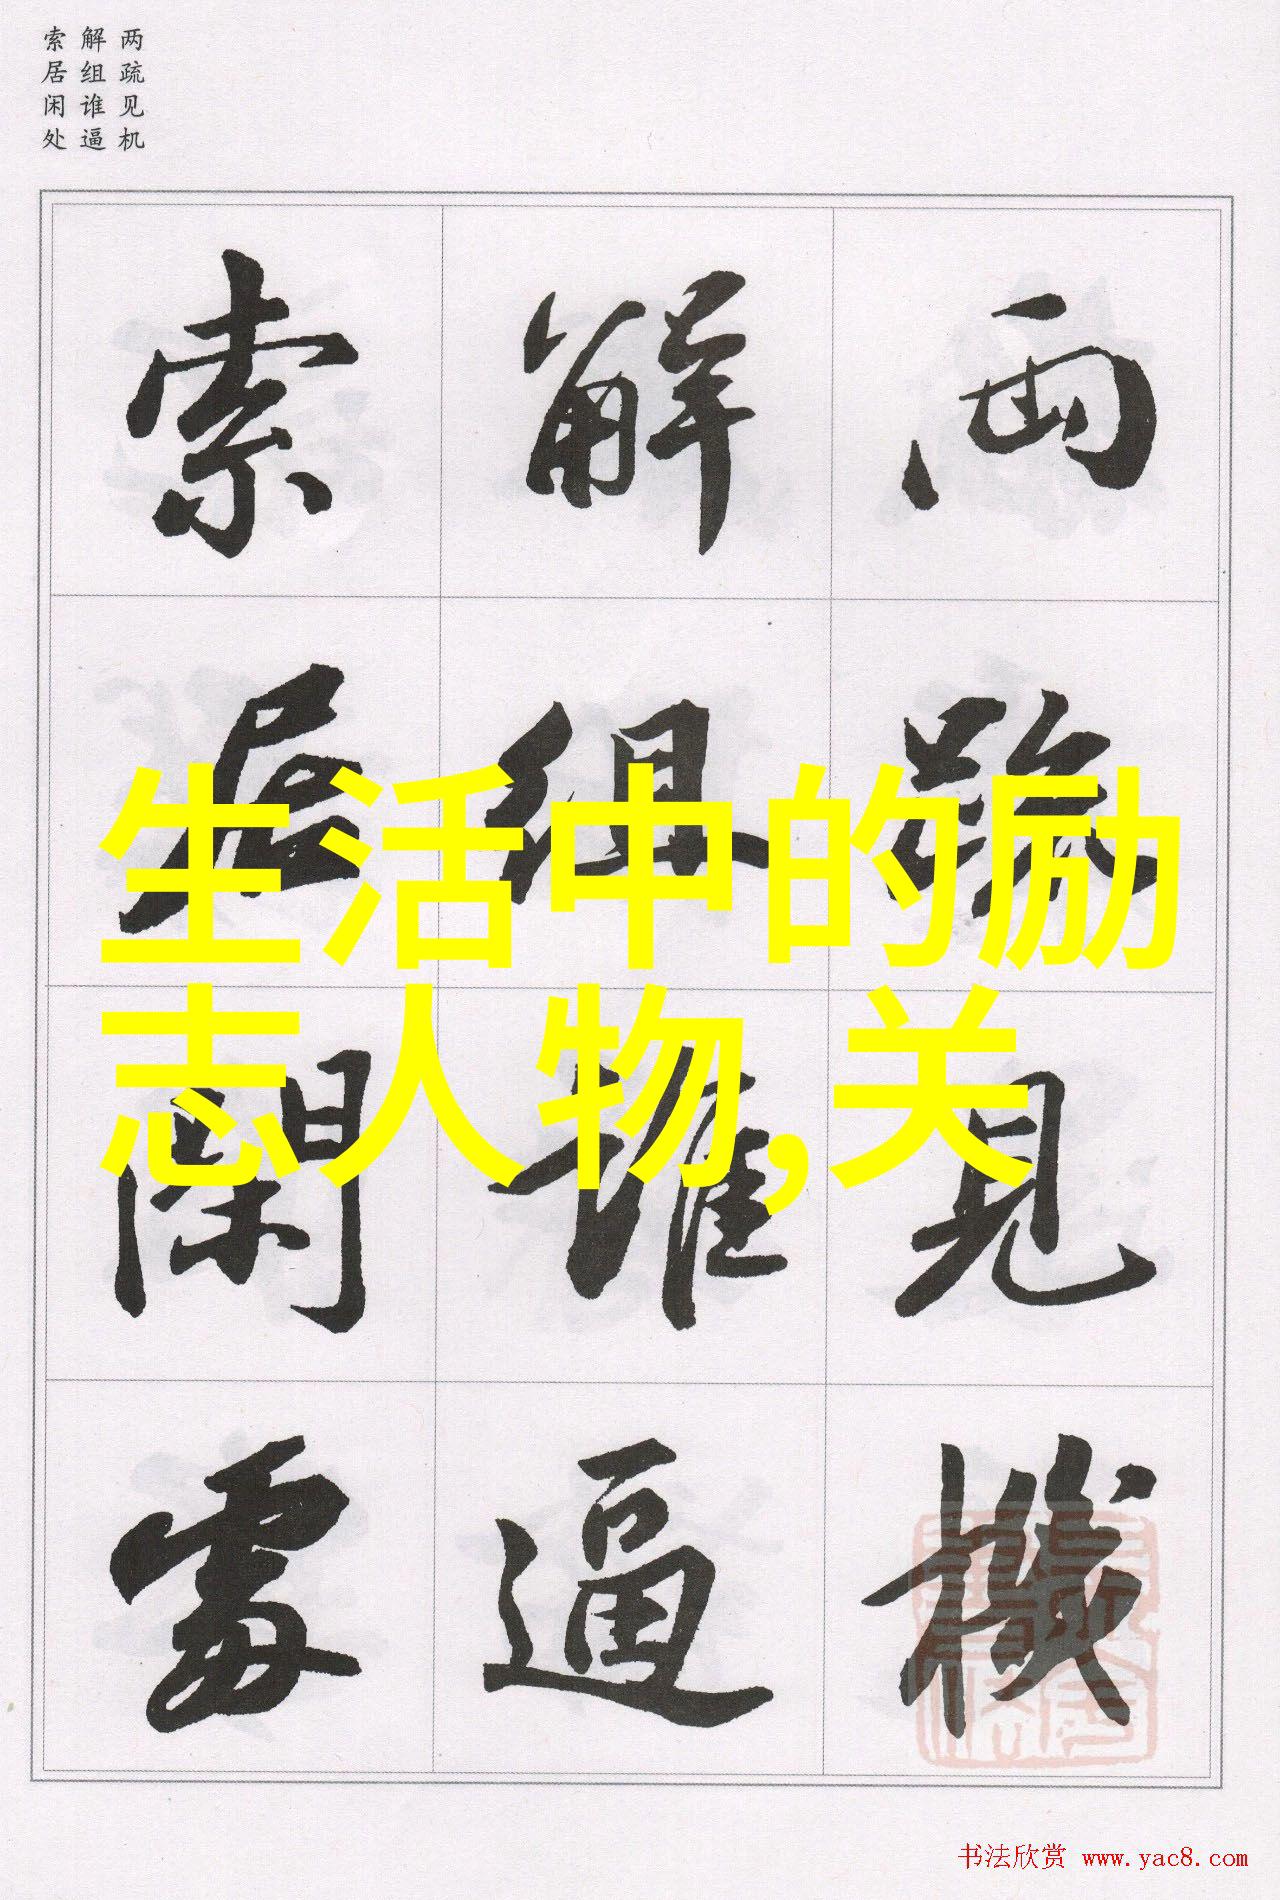 两疏见机
解组谁逼
索居闲处
兩疏見機
解組誰逼
索居閑處
生活中的励
志人物,关
书法欣赏 www.yac8.com